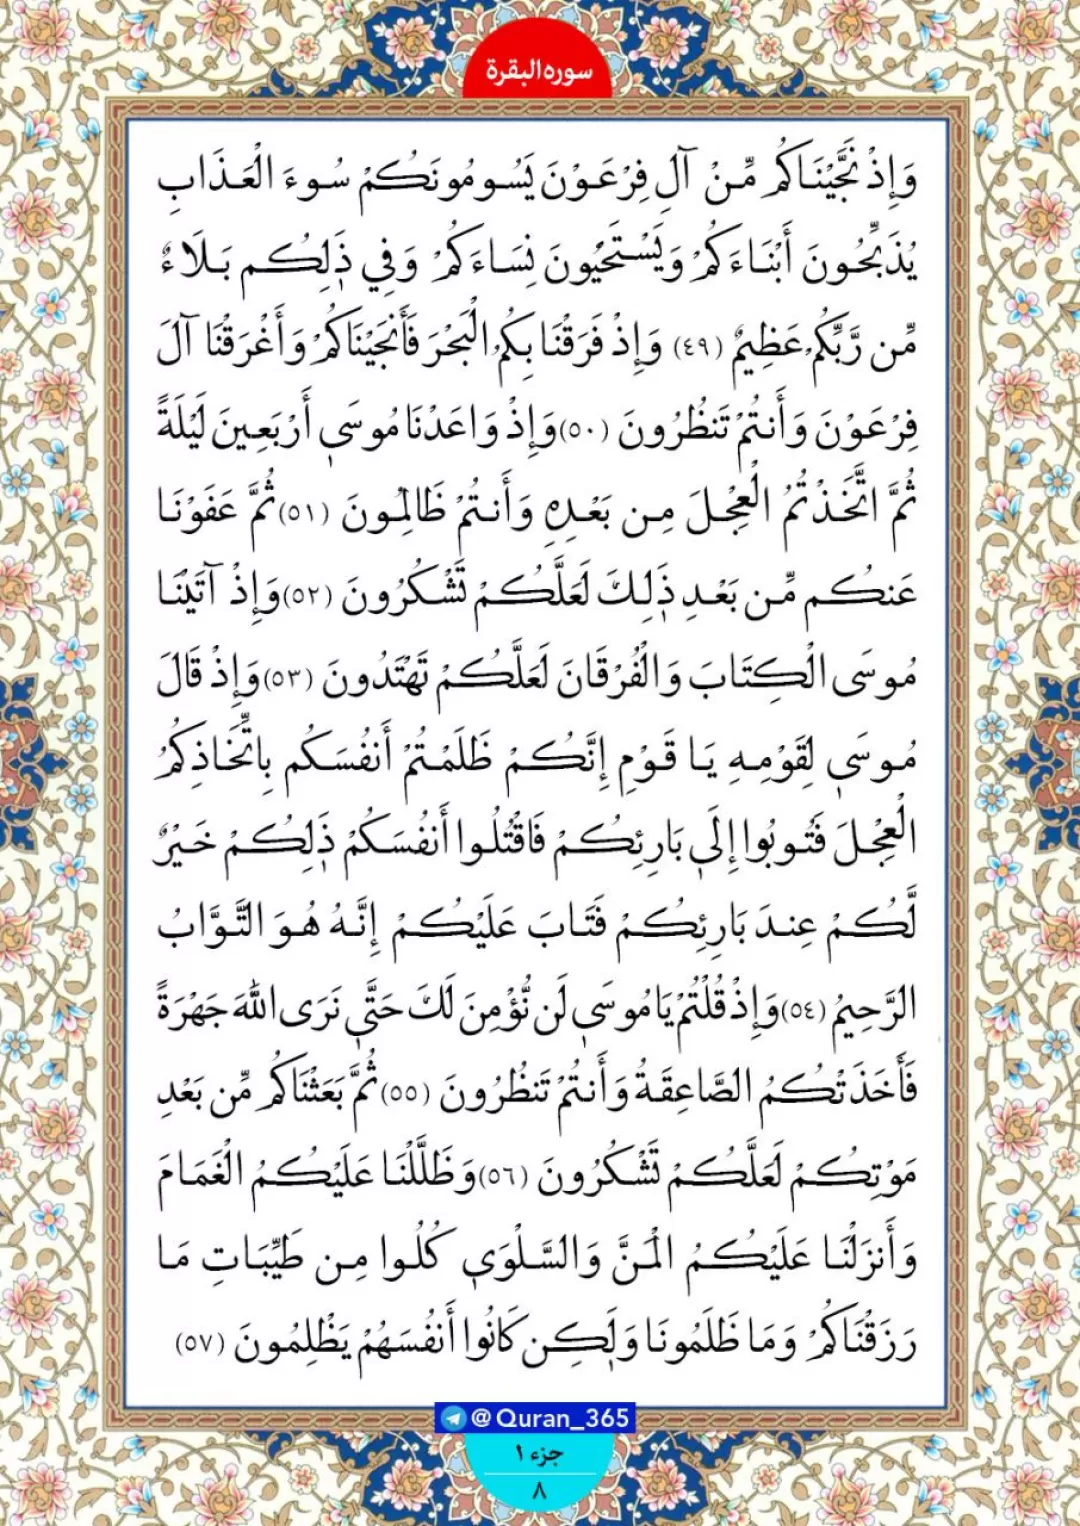 سوره البقرة
وَإِذْ نَجَّيْنَاكُم مِّنْ آلِ فِرْعَوْنَ يَسُومُونَكُمْ سُوءَ الْعَذَابِ
يُذَبِّحُونَ أَبْنَاءَكُمْ وَيَسْتَحْيُونَ نِسَاءَكُمْ وَفِي ذَٰلِكُم بَلَاءٌ
مِّن رَّبِّكُمْ عَظِيمٌ (٤٩) وَإِذْ فَرَقْنَا بِكُمُ الْبَحْرَ فَأَنجَيْنَاكُمْ وَأَغْرَقْنَا آلَ
فِرْعَوْنَ وَأَنتُمْ تَنظُرُونَ (٥٠) وَإِذْ وَاعَدْنَا مُوسَىٰ أَرْبَعِينَ لَيْلَةً
ثُمَّ اتَّخَذْتُمُ الْعِجْلَ مِن بَعْدِهِ وَأَنتُمْ ظَالِمُونَ (٥١) ثُمَّ عَفَوْنَا
عَنكُم مِّن بَعْدِ ذَٰلِكَ لَعَلَّكُمْ تَشْكُرُونَ (٥٢) وَإِذْ آتَيْنَا
مُوسَى الْكِتَابَ وَالْفُرْقَانَ لَعَلَّكُمْ تَهْتَدُونَ (٥٣) وَإِذْ قَالَ
مُوسَىٰ لِقَوْمِهِ يَا قَوْمِ إِنَّكُمْ ظَلَمْتُمْ أَنفُسَكُم بِاتِّخَاذِكُمُ
الْعِجْلَ فَتُوبُوا إِلَىٰ بَارِئِكُمْ فَاقْتُلُوا أَنفُسَكُمْ ذَٰلِكُمْ خَيْرٌ
لَّكُمْ عِندَ بَارِئِكُمْ فَتَابَ عَلَيْكُمْ إِنَّهُ هُوَ التَّوَّابُ
الرَّحِيمُ (٥٤) وَإِذْ قُلْتُمْ يَا مُوسَىٰ لَن نُّؤْمِنَ لَكَ حَتَّىٰ نَرَى اللَّهَ جَهْرَةً
فَأَخَذَتْكُمُ الصَّاعِقَةُ وَأَنتُمْ تَنظُرُونَ (٥٥) ثُمَّ بَعَثْنَاكُم مِّن بَعْدِ
مَوْتِكُمْ لَعَلَّكُمْ تَشْكُرُونَ (٥٦) وَظَلَّلْنَا عَلَيْكُمُ الْغَمَامَ
وَأَنزَلْنَا عَلَيْكُمُ الْمَنَّ وَالسَّلْوَىٰ كُلُوا مِن طَيِّبَاتِ مَا
رَزَقْنَاكُمْ وَمَا ظَلَمُونَا وَلَٰكِن كَانُوا أَنفُسَهُمْ يَظْلِمُونَ (٥٧)
@Quran_365
جزء ١
٨